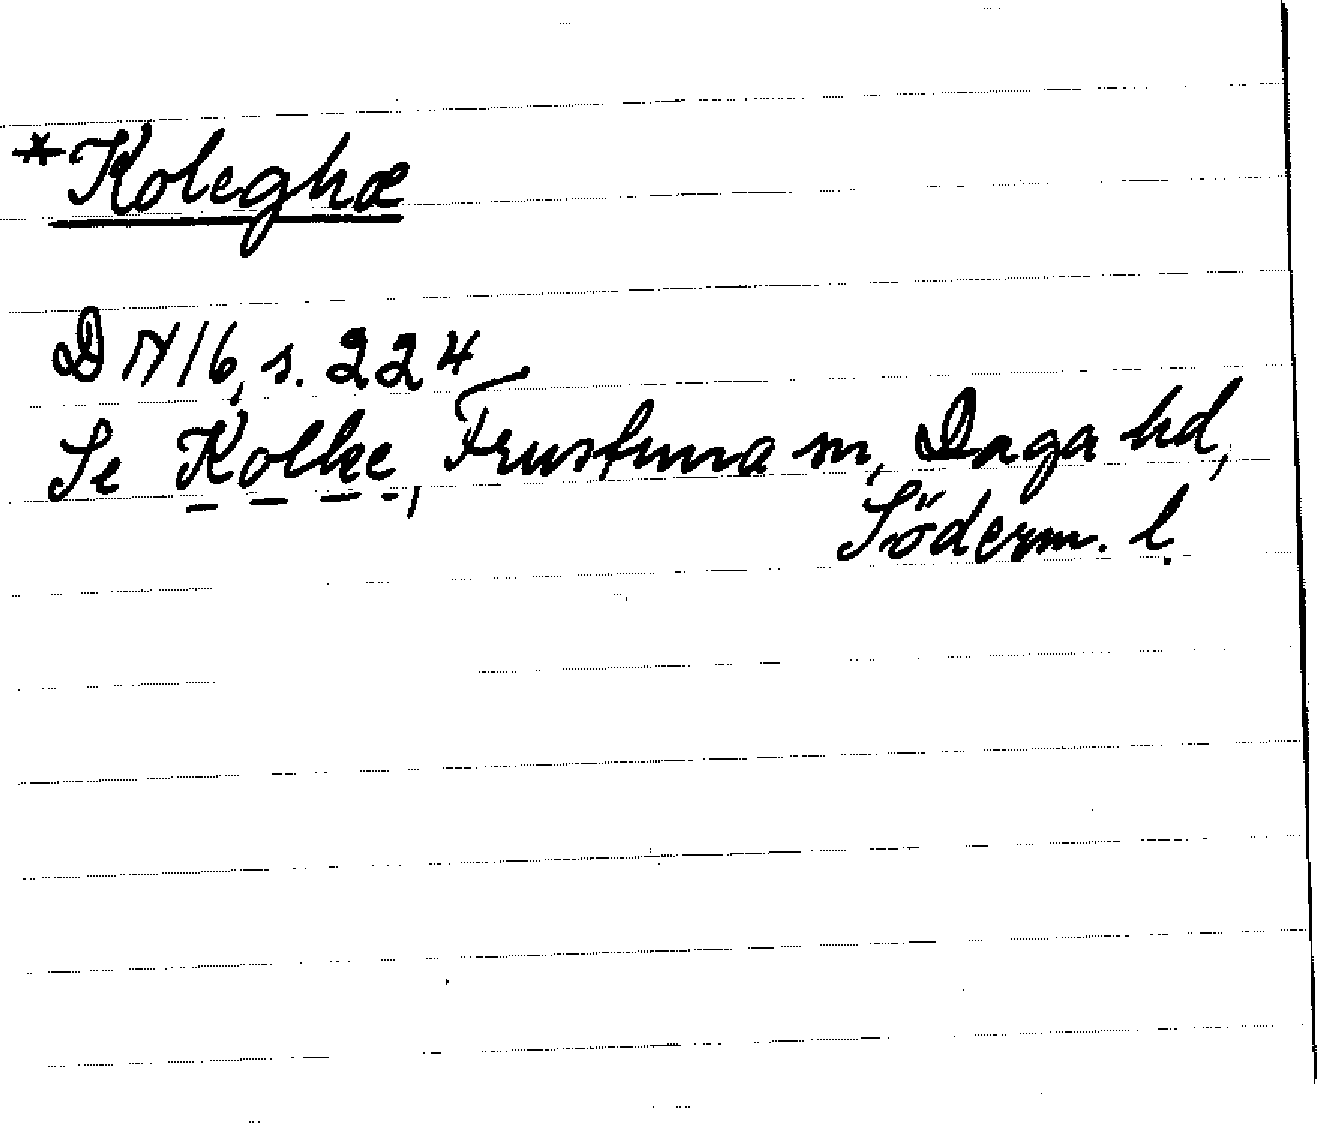 *Koleghæ
D N 16, s. 224
Se Kolke, Frustuna sn, Daga hd,
Söderm. l.